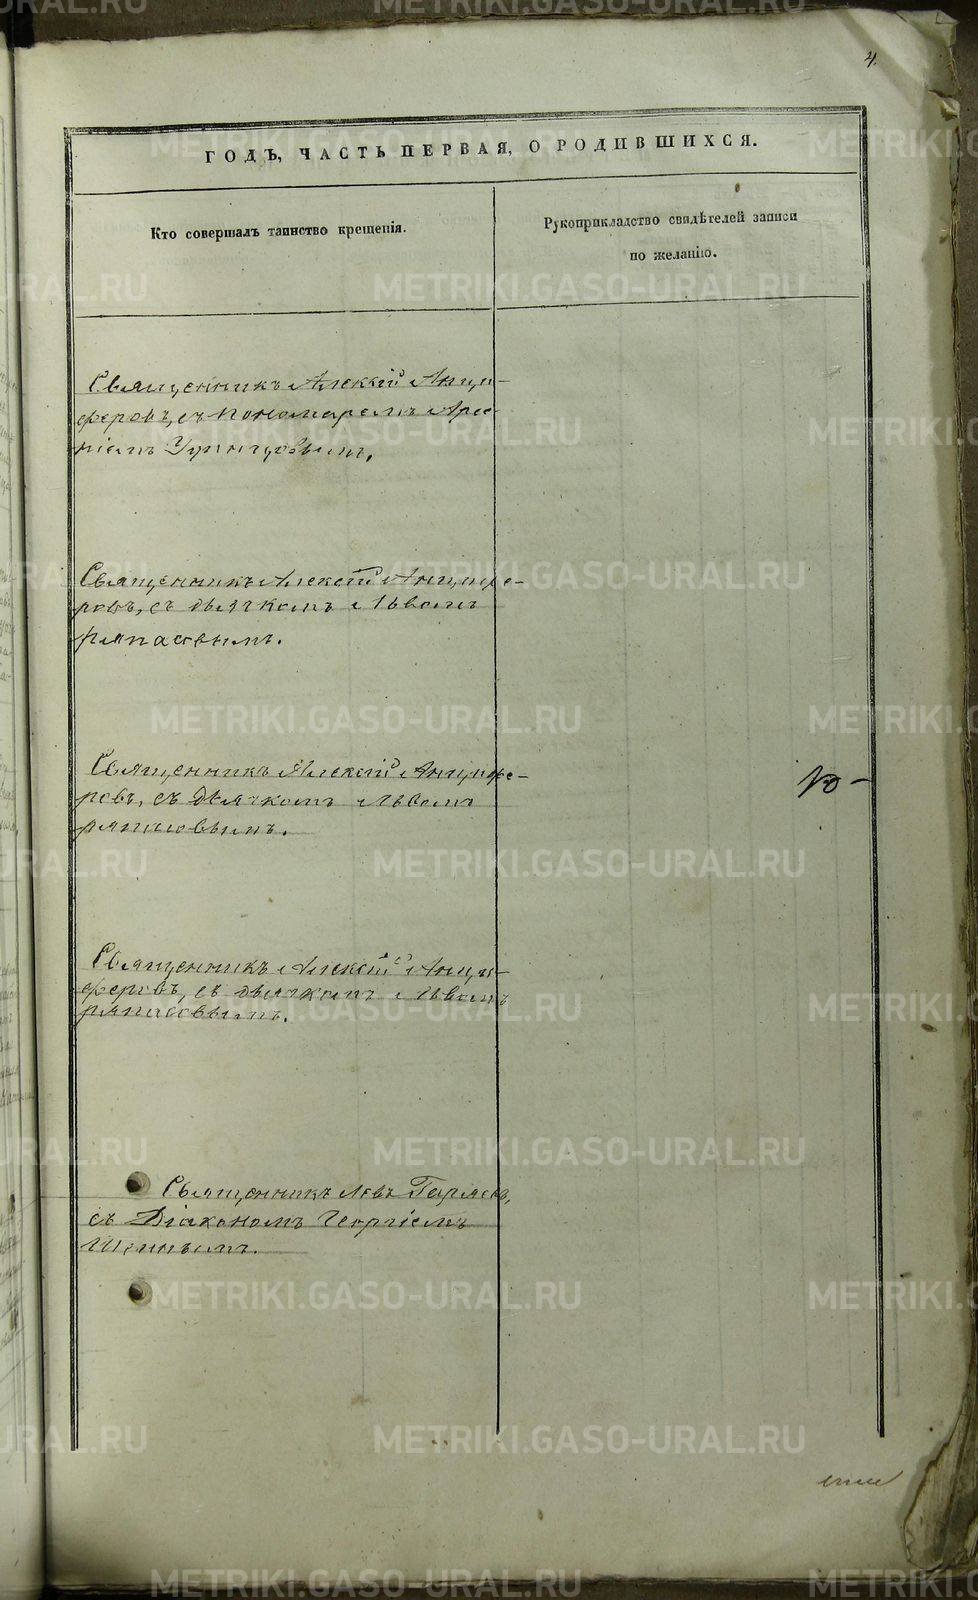 4.
ГОДЪ, ЧАСТЬ ПЕРВАЯ, О РОДИВШИХСЯ.
Кто совершалъ таинство крещенія.
Рукоприкладство свидѣтелей записи
по желанію.
Священникъ Алексій Анци-
феровъ, съ пономаремъ Арсе-
ніемъ
Священникъ Алексій Анцифе-
ровъ, съ дьячкомъ Львомъ
Ряпасовымъ.
Священникъ Алексій Анцифе-
ровъ, съ дьячкомъ Львомъ
Ряпасовымъ.
Священникъ Алексій Анци-
феровъ, съ дьячкомъ Львомъ
Ряпасовымъ.
Священникъ Левъ Гаряевъ,
съ Діакономъ Георгіемъ
METRIKI.GASO-URAL.RU